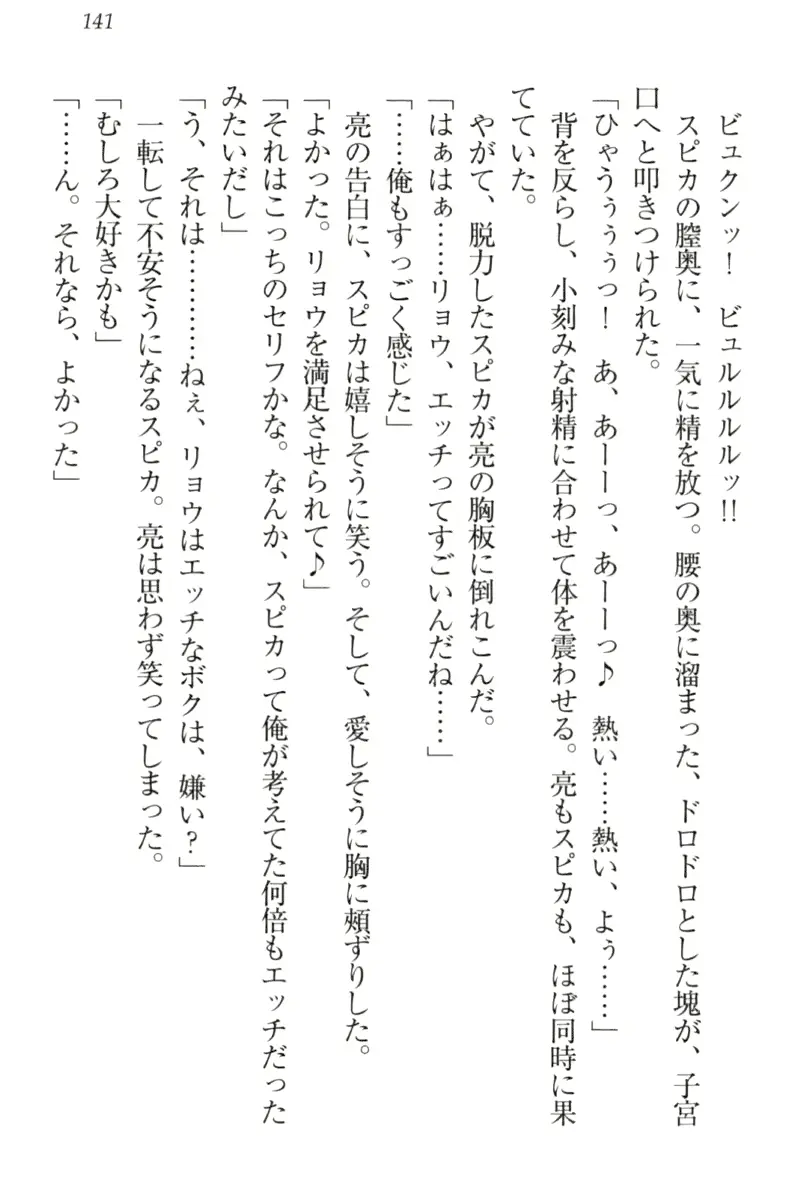 141
ビュクンッ！　ビュルルルルッ!!
スピカの膣奥に、一気に精を放つ。腰の奥に溜まった、ドロドロとした塊が、子宮
口へと叩きつけられた。
「ひゃうぅぅぅっ！　あ、あーーっ、あーーっ♪　熱い……熱い、よぅ……」
背を反らし、小刻みな射精に合わせて体を震わせる。亮もスピカも、ほぼ同時に果
てていた。
やがて、脱力したスピカが亮の胸板に倒れこんだ。
「はぁはぁ……リョウ、エッチってすごいんだね……」
「……俺もすっごく感じた」
亮の告白に、スピカは嬉しそうに笑う。そして、愛しそうに胸に頬ずりした。
「よかった。リョウを満足させられて♪」
「それはこっちのセリフかな。なんか、スピカって俺が考えてた何倍もエッチだった
みたいだし」
「う、それは…………ねぇ、リョウはエッチなボクは、嫌い？」
一転して不安そうになるスピカ。亮は思わず笑ってしまった。
「むしろ大好きかも」
「……ん。それなら、よかった」